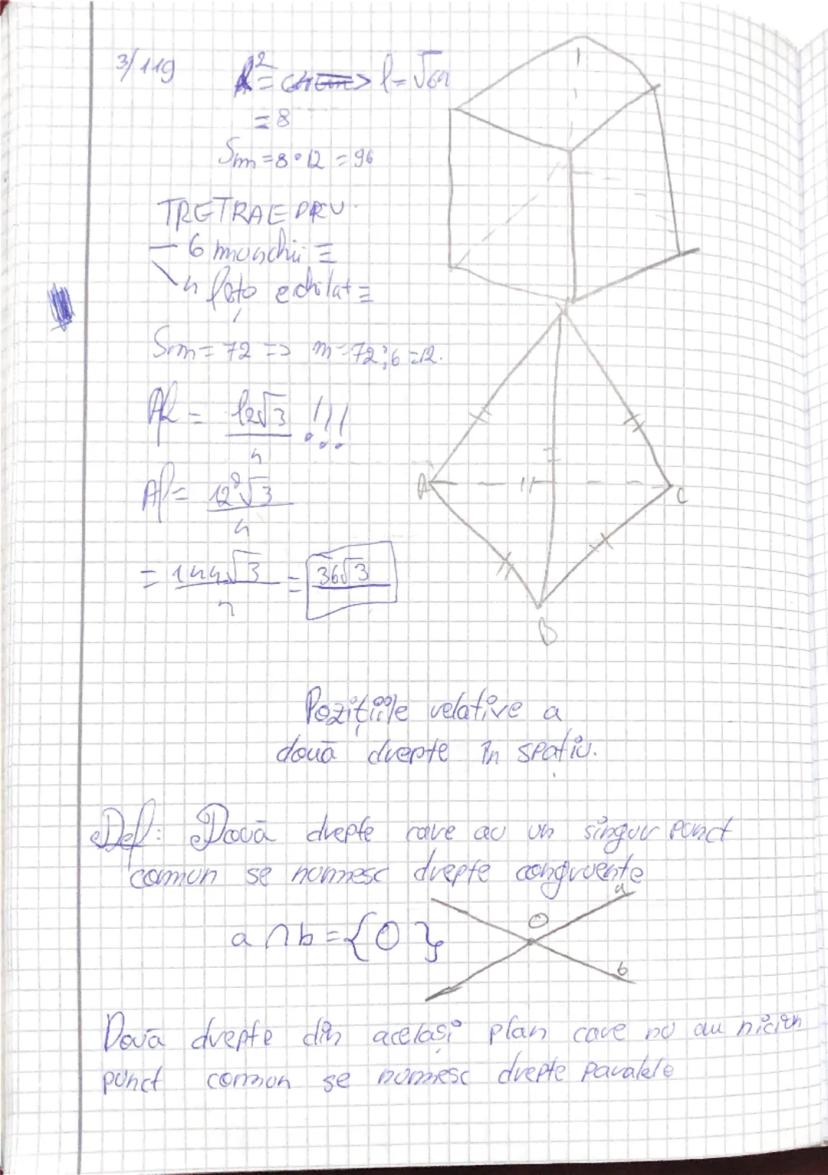 3/119
l² = 64 => l = √64
= 8
Sm = 8 · 12 = 96
TRETRAEDRU
— 6 muchii ≡
4 fețe echilat ≡
Sm = 72 => m = 72 : 6 = 12.
Af = l²√3 / 4 !!!
Af = 12²√3 / 4
= 144√3 / 4 = 36√3
V
A
C
B
Pozițiile relative a
două drepte în spațiu.
Def: Două drepte care au un singur punct
comun se numesc drepte congruente
a ∩ b = {O}
O
a
b
Două drepte din același plan care nu au niciun
punct comun se numesc drepte paralele